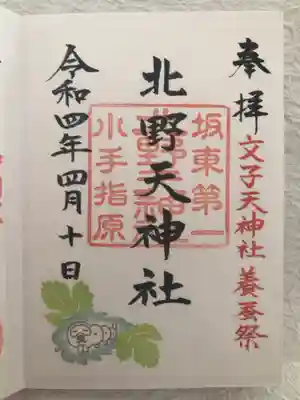 奉拝
文子天神社養蚕祭
北野天神社
坂東第一
北野天神
小手指原
令和四年四月十日